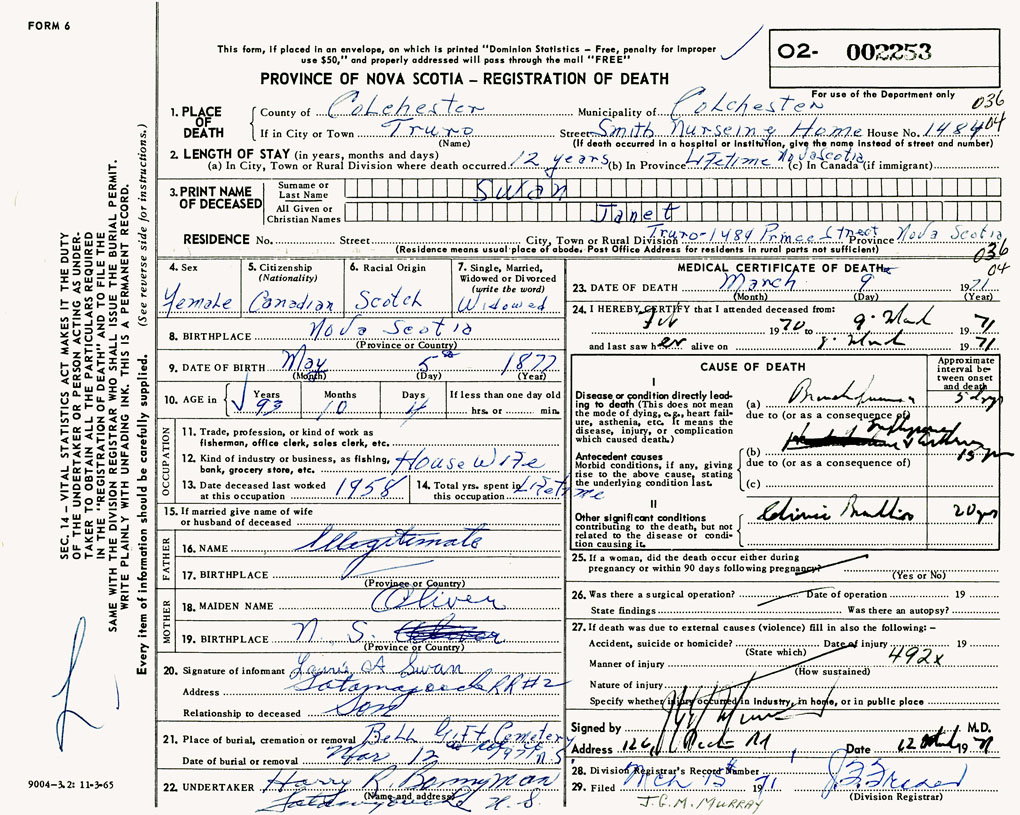 FORM 6
This form, if placed in an envelope, on which is printed "Dominion Statistics – Free, penalty for improper
use $50," and properly addressed will pass through the mail "FREE"
O2- 002253
For use of the Department only
PROVINCE OF NOVA SCOTIA – REGISTRATION OF DEATH
036
04
1. PLACE OF DEATH
County of Colchester Municipality of Colchester
If in City or Town Truro Street Smith Nurseing Home House No. 1484
(Name) (If death occurred in a hospital or institution, give the name instead of street and number)
2. LENGTH OF STAY (in years, months and days)
(a) In City, Town or Rural Division where death occurred 12 years (b) In Province Lifetime Nova Scotia (c) In Canada (if immigrant)
3. PRINT NAME OF DECEASED
Surname or Last Name Swan
All Given or Christian Names Janet
RESIDENCE No. Street City, Town or Rural Division Truro-1484 Prince Street Province Nova Scotia
(Residence means usual place of abode. Post Office Address for residents in rural parts not sufficient)
036
04
4. Sex Female
5. Citizenship (Nationality) Canadian
6. Racial Origin Scotch
7. Single, Married, Widowed or Divorced (write the word) Widowed
8. BIRTHPLACE Nova Scotia
(Province or Country)
9. DATE OF BIRTH May 5th 1877
(Month) (Day) (Year)
10. AGE in Years 93 Months 10 Days 4 If less than one day old hrs. or min.
OCCUPATION
11. Trade, profession, or kind of work as
fisherman, office clerk, sales clerk, etc.
12. Kind of industry or business, as fishing,
bank, grocery store, etc. House Wife
13. Date deceased last worked at this occupation 1958
14. Total yrs. spent in this occupation Lifetime
15. If married give name of wife
or husband of deceased
FATHER
16. NAME Illegitimate
17. BIRTHPLACE
(Province or Country)
MOTHER
18. MAIDEN NAME Oliver
19. BIRTHPLACE N. S.
(Province or Country)
20. Signature of informant A Swan
Address Tatamagouche RR#2
Relationship to deceased Son
21. Place of burial, cremation or removal Bell Gift Cemetery
Date of burial or removal Mar 12 1971 N.S
22. UNDERTAKER Harry R. Bonnyman
(Name and address)
Tatamagouche N.S.
MEDICAL CERTIFICATE OF DEATH
23. DATE OF DEATH March 9 1971
(Month) (Day) (Year)
24. I HEREBY CERTIFY that I attended deceased from:
Feb 1970 to 9 March 1971
and last saw her alive on 8 March 1971
CAUSE OF DEATH
Approximate interval between onset and death
I
Disease or condition directly leading to death (This does not mean the mode of dying, e.g., heart failure, asthenia, etc. It means the disease, injury, or complication which caused death.)
(a) 5 days
due to (or as a consequence of)
Antecedent causes
Morbid conditions, if any, giving rise to the above cause, stating the underlying condition last.
(b) 15 yrs
due to (or as a consequence of)
(c)
II
Other significant conditions contributing to the death, but not related to the disease or condition causing it.
20 yrs
25. If a woman, did the death occur either during
pregnancy or within 90 days following pregnancy?
(Yes or No)
26. Was there a surgical operation? Date of operation 19
State findings Was there an autopsy?
27. If death was due to external causes (violence) fill in also the following:–
Accident, suicide or homicide? Date of injury 19
(State which) 492x
Manner of injury
(How sustained)
Nature of injury
Specify whether injury occurred in industry, in home, or in public place
Signed by M.D.
Address 126 Date 12 1971
28. Division Registrar's Record Number
29. Filed Mch 15th 1971
J.G.M. MURRAY
(Division Registrar)
SEC. 14 – VITAL STATISTICS ACT MAKES IT THE DUTY
OF THE UNDERTAKER OR PERSON ACTING AS UNDER-
TAKER TO OBTAIN ALL THE PARTICULARS REQUIRED
IN THE "REGISTRATION OF DEATH" AND TO FILE THE
SAME WITH THE DIVISION REGISTRAR WHO SHALL ISSUE THE BURIAL PERMIT.
WRITE PLAINLY WITH UNFADING INK. THIS IS A PERMANENT RECORD.
Every item of information should be carefully supplied. (See reverse side for instructions.)
9004-3.2: 11-3-65